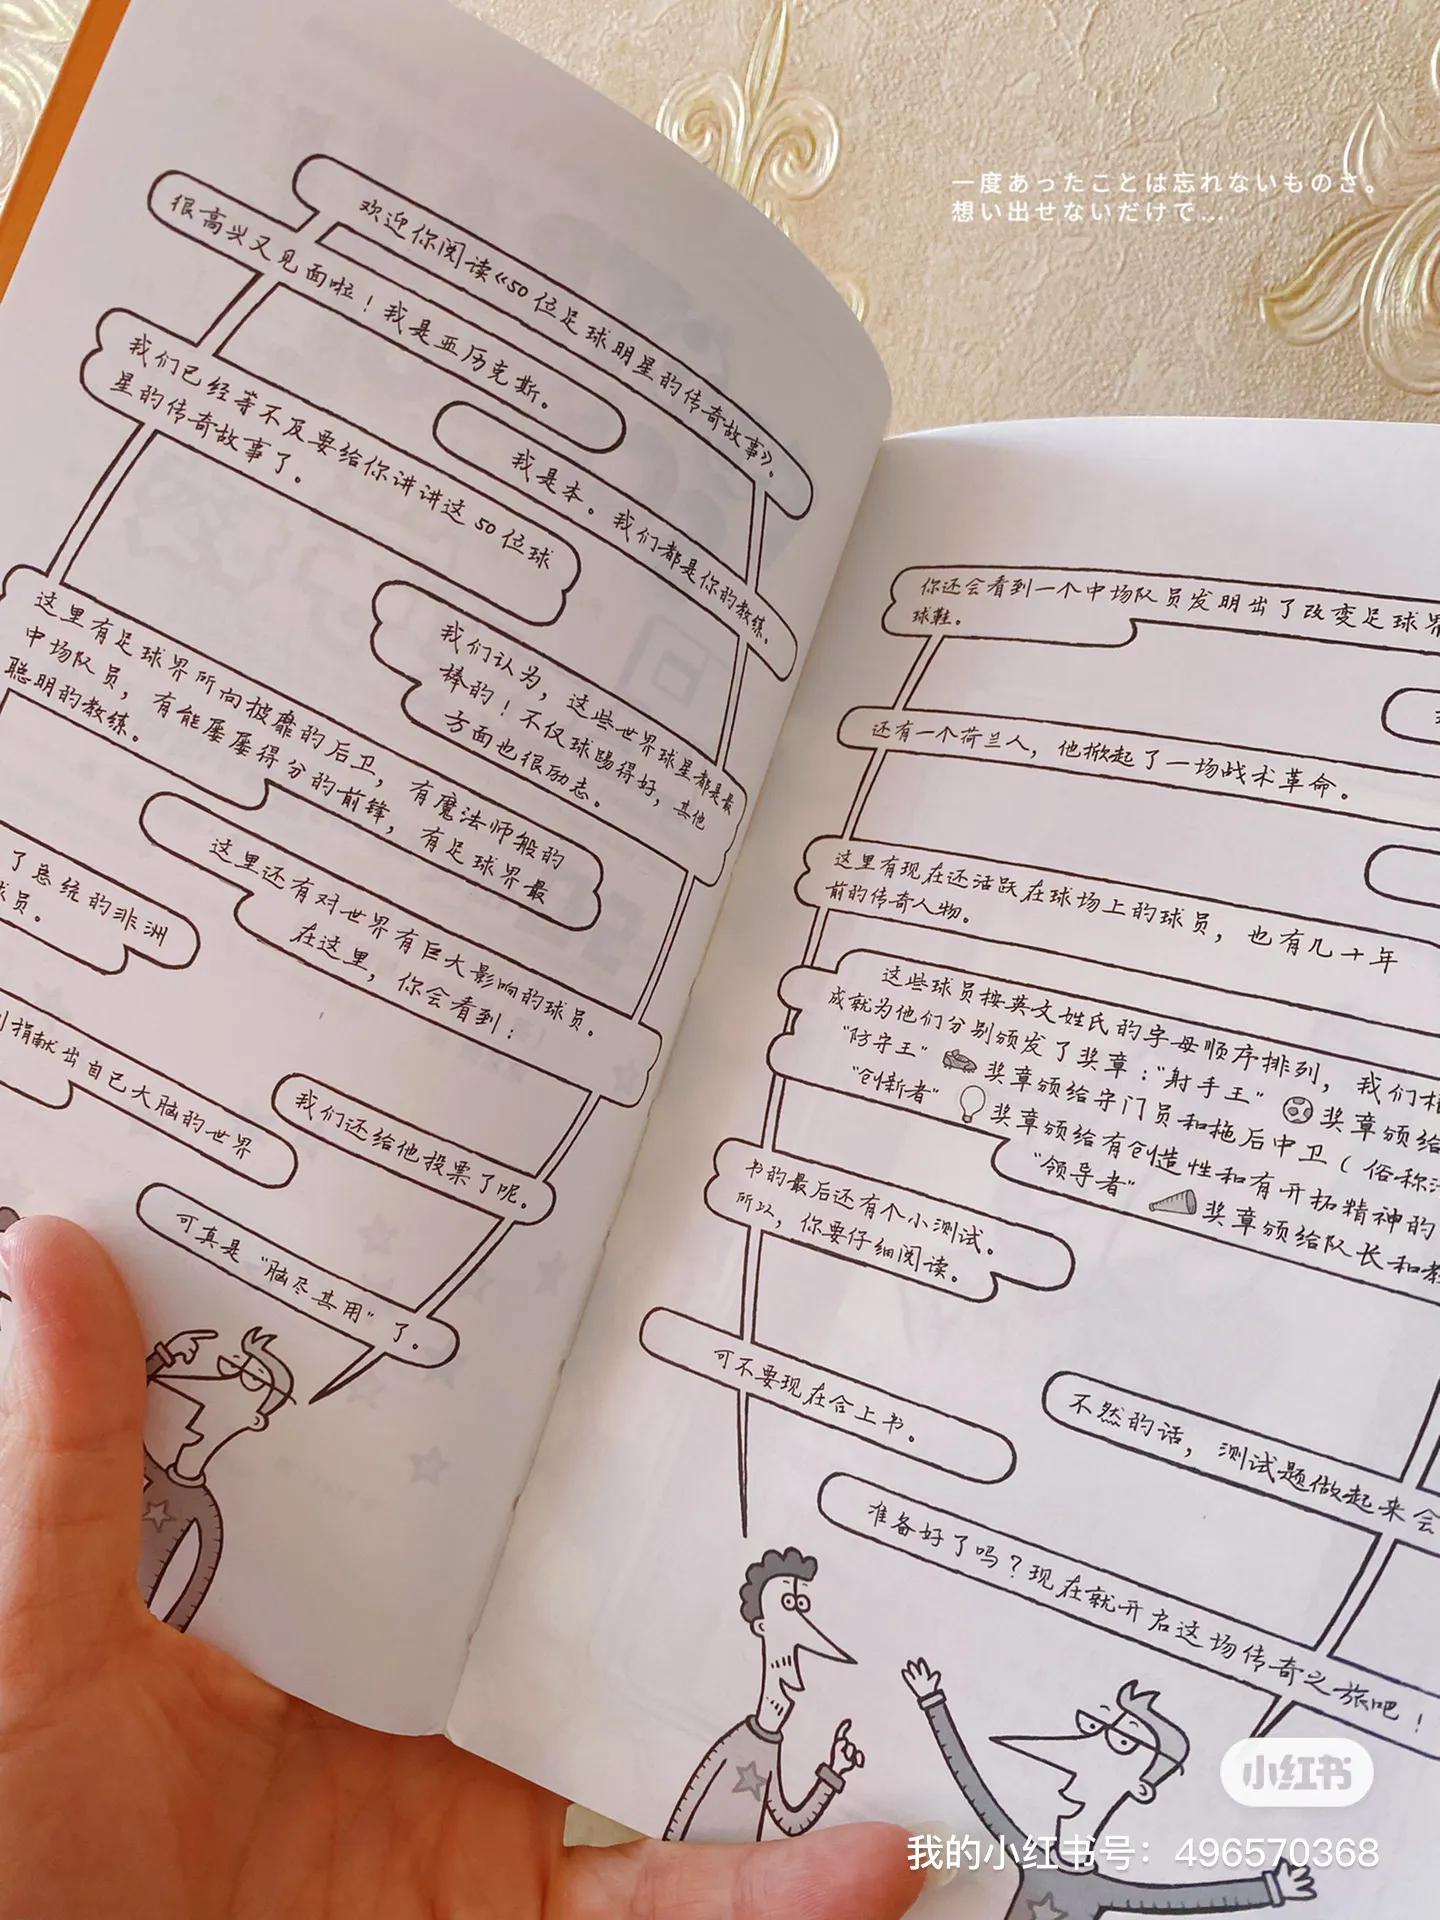 一度あったことは忘れないものさ。
想い出せないだけで...
欢迎你阅读《50位足球明星的传奇故事》。
很高兴又见面啦！我是亚历克斯。
我是本。我们都是你的教练。
我们已经等不及要给你讲讲这50位球
星的传奇故事了。
我们认为，这些世界球星都是最
棒的！不仅球踢得好，其他
方面也很励志。
这里有足球界所向披靡的后卫，有魔法师般的
中场队员，有能屡屡得分的前锋，有足球界最
聪明的教练。
这里还有对世界有巨大影响的球员。
在这里，你会看到：
了总统的非洲
球员。
捐献出自己大脑的世界
我们还给他投票了呢。
可真是“脑尽其用”了。
你还会看到一个中场队员发明出了改变足球界
球鞋。
还有一个荷兰人，他掀起了一场战术革命。
这里有现在还活跃在球场上的球员，也有几十年
前的传奇人物。
这些球员按英文姓氏的字母顺序排列，我们根
成就为他们分别颁发了奖章：“射手王”奖章颁给
“防守王”奖章颁给守门员和拖后中卫（俗称清
“创新者”奖章颁给有创造性和有开拓精神的
“领导者”奖章颁给队长和教
书的最后还有个小测试。
所以，你要仔细阅读。
可不要现在合上书。
不然的话，测试题做起来会
准备好了吗？现在就开启这场传奇之旅吧！
小红书
我的小红书号：496570368